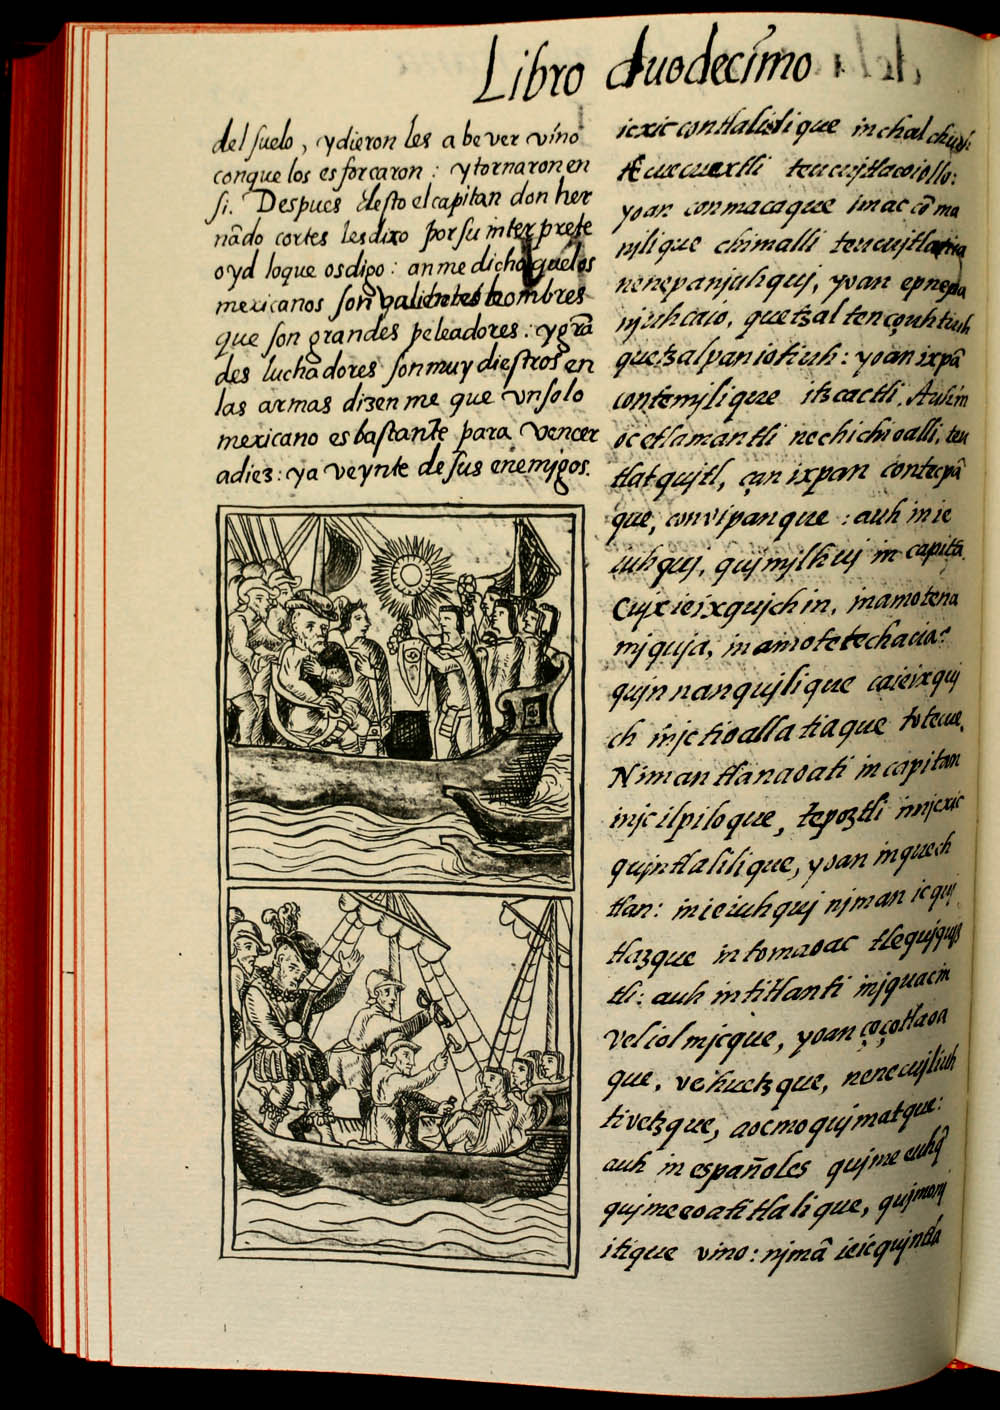 Libro duodecimo
del suelo, y dieron les a bever vino
conque los esforcaron: y tornaron en
si. Despues desto el capitan don her
nãdo cortes les dixo por su interprete
oyd loque os digo: an me dicho que los
mexicanos son valientes hombres
que son grandes peleadores: y grã
des luchadores son muy diestros en
las armas dizen me que un solo
mexicano es bastante para vencer
a diez: y a veynte de sus enemjgos.
icxic contlalilique in chalchiuhi
tecuecuextli teucujtlacoiollo:
yoan conmacaque imac cõma
njlique chimalli teucujtlatica
nenepanjuhquj, yoan epnepa
njuhcaio, quetzal tençouhtiuh
quetzalpaniotiuh: yoan ixpã
contemjlique itzcactli. Auh in
oc etlamantli nechichioalli, teu
tlatqujtl, çan ixpan contecpã
que, convipanque: auh in ie
iuhquj, qujmjlhuj in capitã.
Cujx ie ixqujch in, in amotena
mjquja, in amotetechacia?
qujnnanqujlique ca ie ixquj
ch injc tioallatiaque totecue.
Niman tlanaoati in capitan
injc ilpiloque, tepoztli imjcxic
qujntlalilique, yoan inquech
tlan: in ie iuhquj njman ic quj
tlazque in tomaoac tlequjqujz
tli: auh in titlanti injquac in
vel iolmjcque, yoan çoçotlaoa
que, vehuetzque, nenecujliuh
tivetzque, aocmo qujmatque:
auh in españoles qujmeeuhq̃
qujmeeoatitlalique, qujmonj
itique vino: njmã ie ic qujntla